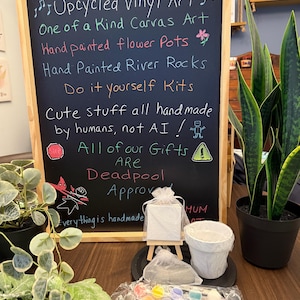 Upcycled Vinyl Art
One of a Kind Canvas Art
Hand painted flower Pots
Hand Painted River Rocks
Do it yourself Kits
Cute stuff all handmade
by humans, not AI!
All of our Gifts
ARe
Deadpool
Approv
Everything is handmade HUM